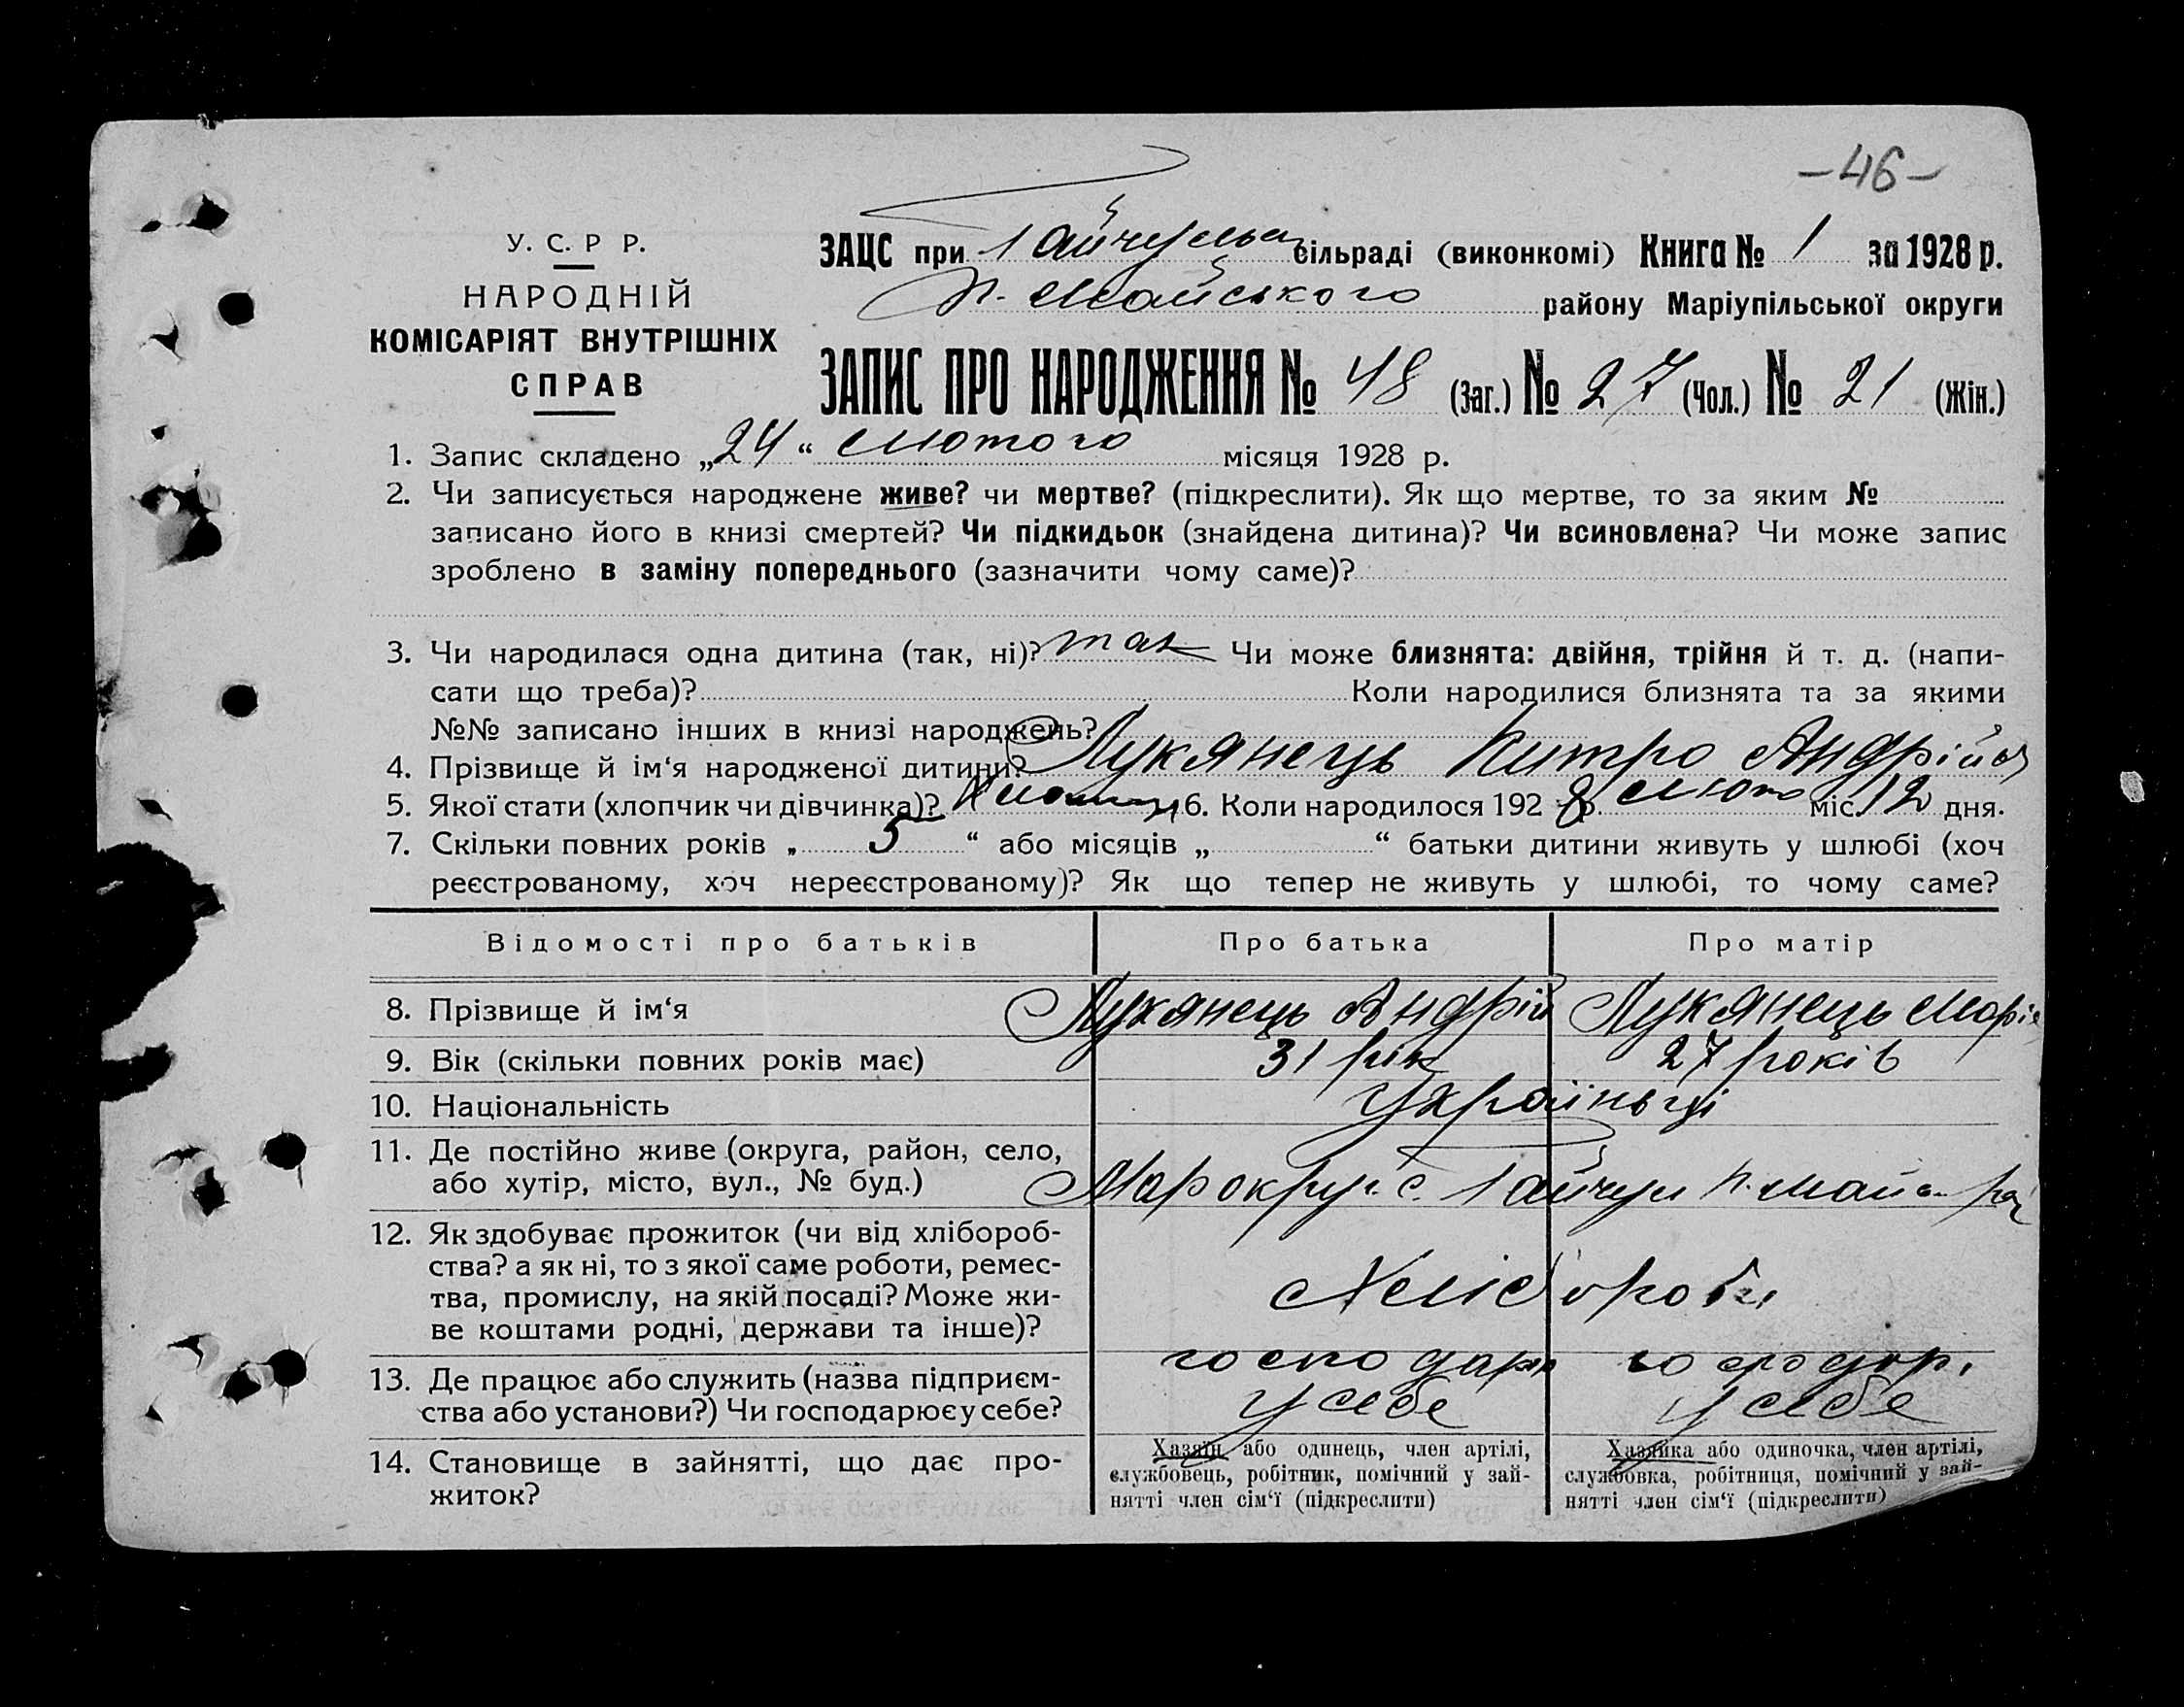 -46-
У. С. Р Р.
НАРОДНІЙ
КОМІСАРІЯТ ВНУТРІШНІХ
СПРАВ
ЗАЦС при Гайчульск сільраді (виконкомі) Книга № 1 за 1928 р.
Н. Майського району Маріупільської округи
ЗАПИС ПРО НАРОДЖЕННЯ № 48 (Заг.) № 27 (Чол.) № 21 (Жін.)
1. Запис складено „24“ лютого місяця 1928 р.
2. Чи записується народжене живе? чи мертве? (підкреслити). Як що мертве, то за яким №
записано його в книзі смертей? Чи підкидьок (знайдена дитина)? Чи всиновлена? Чи може запис
зроблено в заміну попереднього (зазначити чому саме)?
3. Чи народилася одна дитина (так, ні)? так Чи може близнята: двійня, трійня й т. д. (напи-
сати що треба)? Коли народилися близнята та за якими
№№ записано інших в книзі народжень?
4. Прізвище й ім‘я народженої дитини? Лукянець Андрійов
5. Якої стати (хлопчик чи дівчинка)? Хлопчик 6. Коли народилося 192 8 р. Лютого міс. 12 дня.
7. Скільки повних років „ 5 “ або місяців „ “ батьки дитини живуть у шлюбі (хоч
реєстрованому, хоч нереєстрованому)? Як що тепер не живуть у шлюбі, то чому саме?
Відомості про батьків Про батька Про матір
8. Прізвище й ім‘я Лукянець Андрій Лукянець Марія
9. Вік (скільки повних років має) 31 рік 27 років
10. Національність Українці
11. Де постійно живе (округа, район, село,
або хутір, місто, вул., № буд.) Мар округ. с. Гайчул Н. Майск. ра
12. Як здобуває прожиток (чи від хлібороб-
ства? а як ні, то з якої саме роботи, ремес-
тва, промислу, на якій посаді? Може жи-
ве коштами родні, держави та інше)?
Хлібороби
13. Де працює або служить (назва підприєм-
ства або установи?) Чи господарює у себе?
господар господар.
у себе у себе
14. Становище в зайнятті, що дає про-
житок?
Хазяїн або одинець, член артілі,
службовець, робітник, помічний у зай-
нятті член сім‘ї (підкреслити)
Хазяйка або одиночка, член артілі,
службовка, робітниця, помічний у зай-
нятті член сім‘ї (підкреслити)